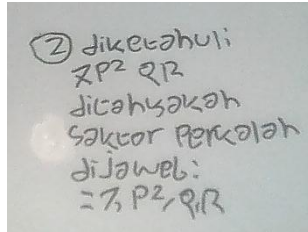 ② diketahuli
7P² QR
ditanyakan
saktor Perkalan
dijaweb:
= 7, P², Q, R